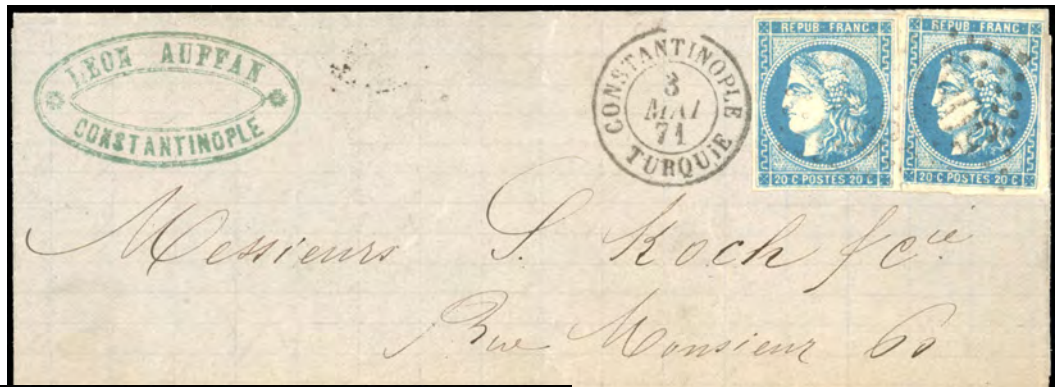 LEON AUFFAN
CONSTANTINOPLE
CONSTANTINOPLE
3
MAI
71
TURQUIE
REPUB FRANC
20 C POSTES 20 C
REPUB FRANC
20 C POSTES 20 C
Messieurs S. Koch & cie
Rue Monsieur 60